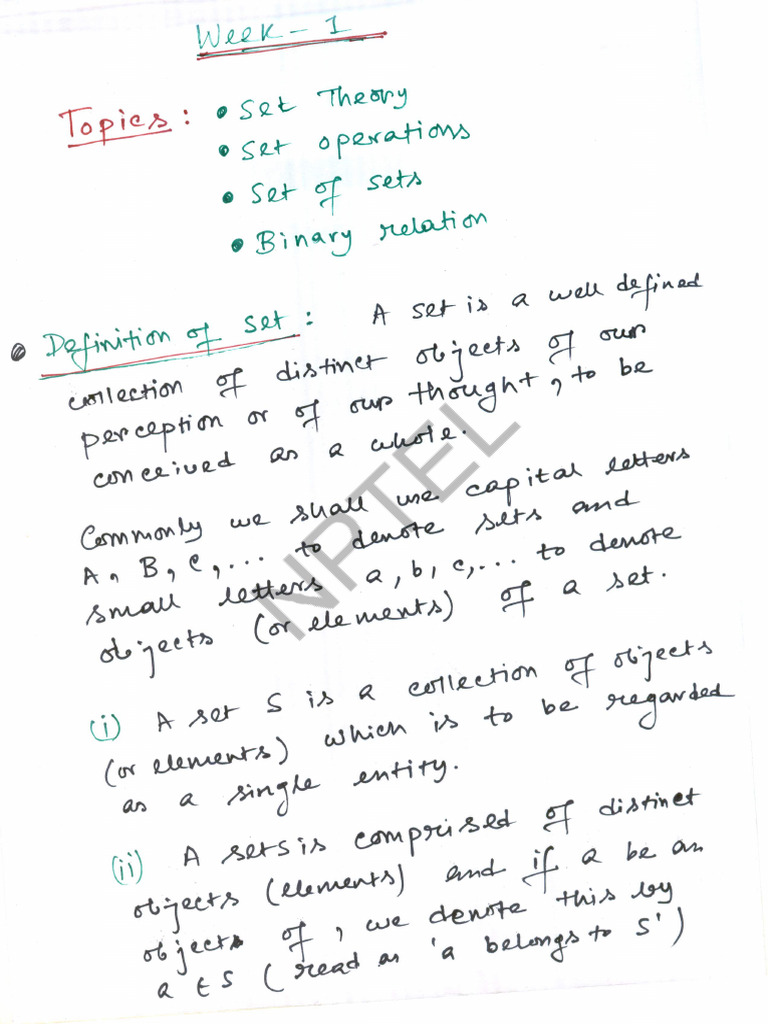 Week - 1
Topics: • Set Theory
• Set operations
• Set of sets
• Binary relation
• Definition of set: A set is a well defined
collection of distinct objects of our
perception or of our thought, to be
conceived as a whole.
Commonly we shall use capital letters
A, B, C, ... to denote sets and
small letters a, b, c, ... to denote
objects (or elements) of a set.
(i) A set S is a collection of objects
(or elements) which is to be regarded
as a single entity.
(ii) A set S is comprised of distinct
objects (elements) and if a be an
objects of, we denote this by
a ∈ S (read as 'a belongs to S')
NPTEL